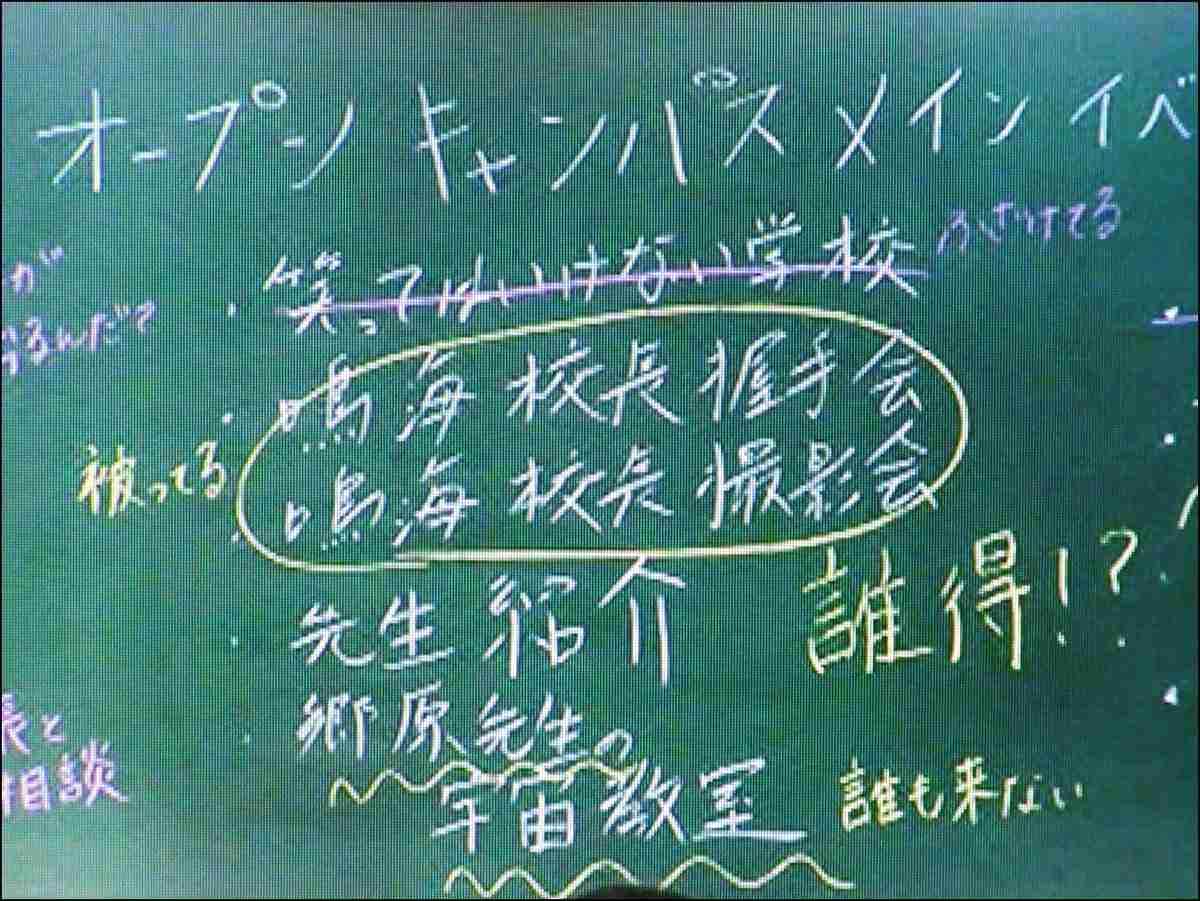 オープンキャンパスメインイベ
・笑ってはいけない学校 ふざけてる
・鳴海校長握手会
・鳴海校長撮影会
被ってる
・先生紹介
誰得!?
・郷原先生の
宇宙教室
誰も来ない
が
るんだて
長と
相談